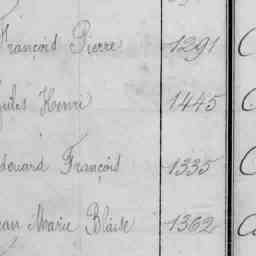 François Pierre 1291
Jules Henri 1445
Edouard François 1335
Jean Marie Blaise 1362